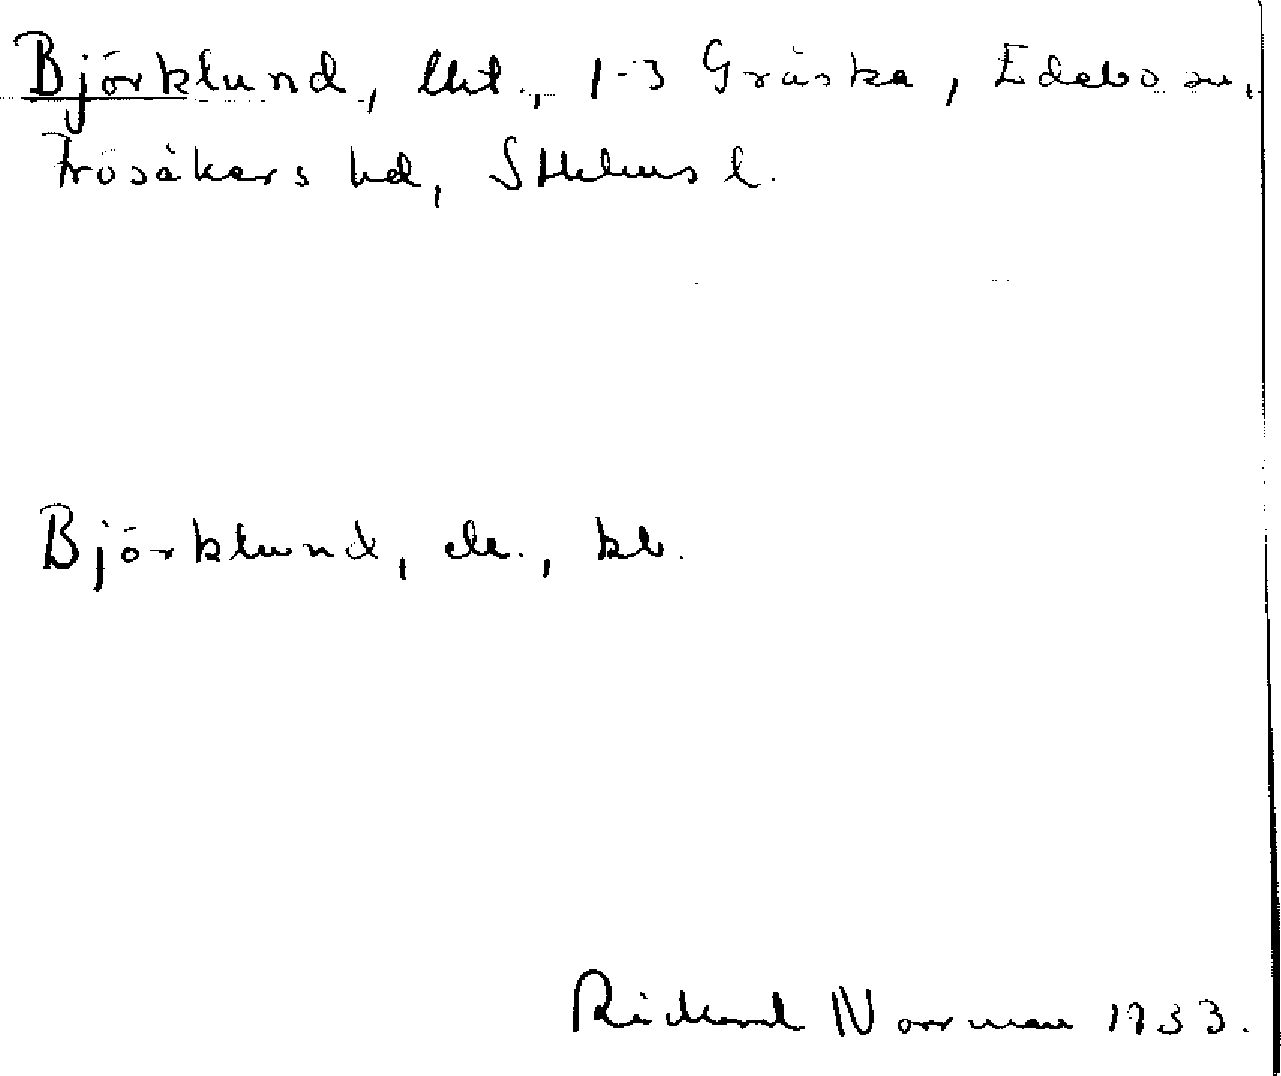 Björklund, lht., 1-3 Gråska, Edebo sn,
Frösåkers hd, Sthlms l.
Björklund, de., kb.
Rickard Norrman 1933.